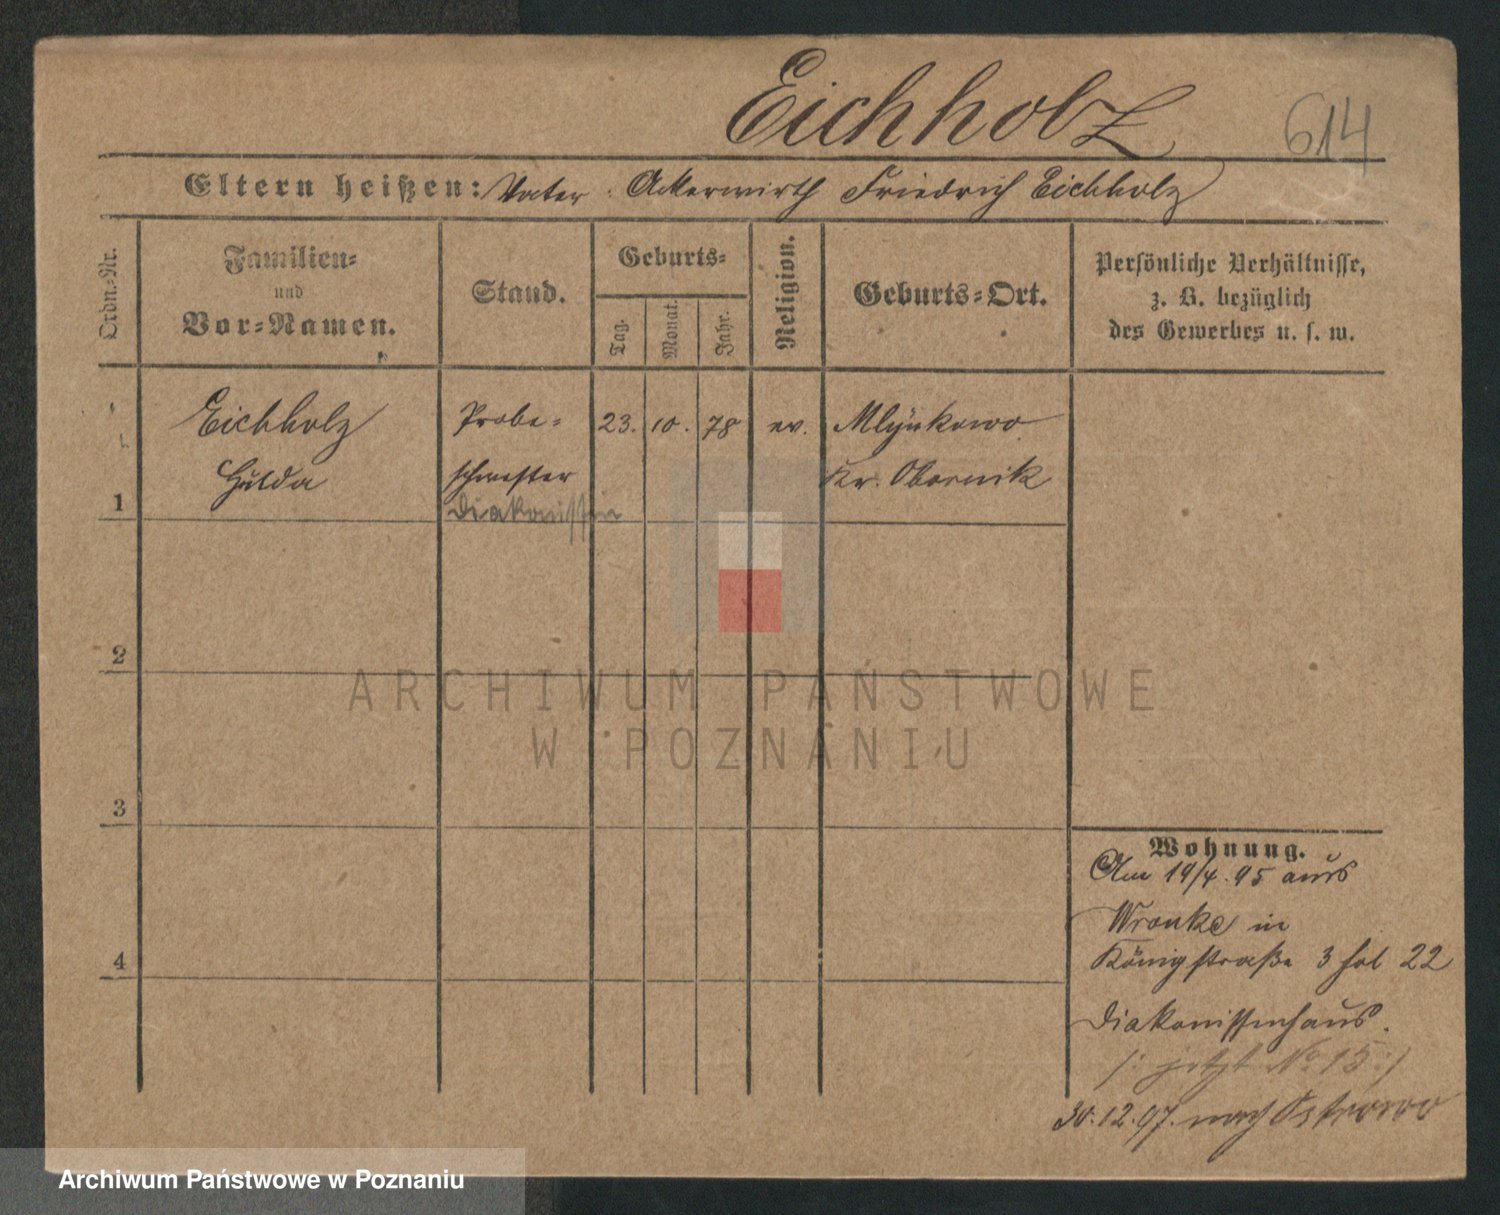 Eichholz
614
Eltern heißen: Vater: Ackerwirth Friedrich Eichholz
Ordn.-Nr.
Familien-
und
Vor-Namen.
Stand.
Geburts-
Tag.
Monat.
Jahr.
Religion.
Geburts-Ort.
Persönliche Verhältnisse,
z. B. bezüglich
des Gewerbes u. s. w.
Eichholz Probe- 23. 10. 78 ev. Mlynkowo
Hulda schwester Kr. Obornik
1 Diakonissin
2
3
4
Wohnung.
Am 19/4. 95 aus
Wronke in
Königstraße 3 fol 22
Diakonissenhaus.
/: jetzt No 15 :/
30.12.97. nach Ostrowo
ARCHIWUM PAŃSTWOWE
W POZNANIU
Archiwum Państwowe w Poznaniu